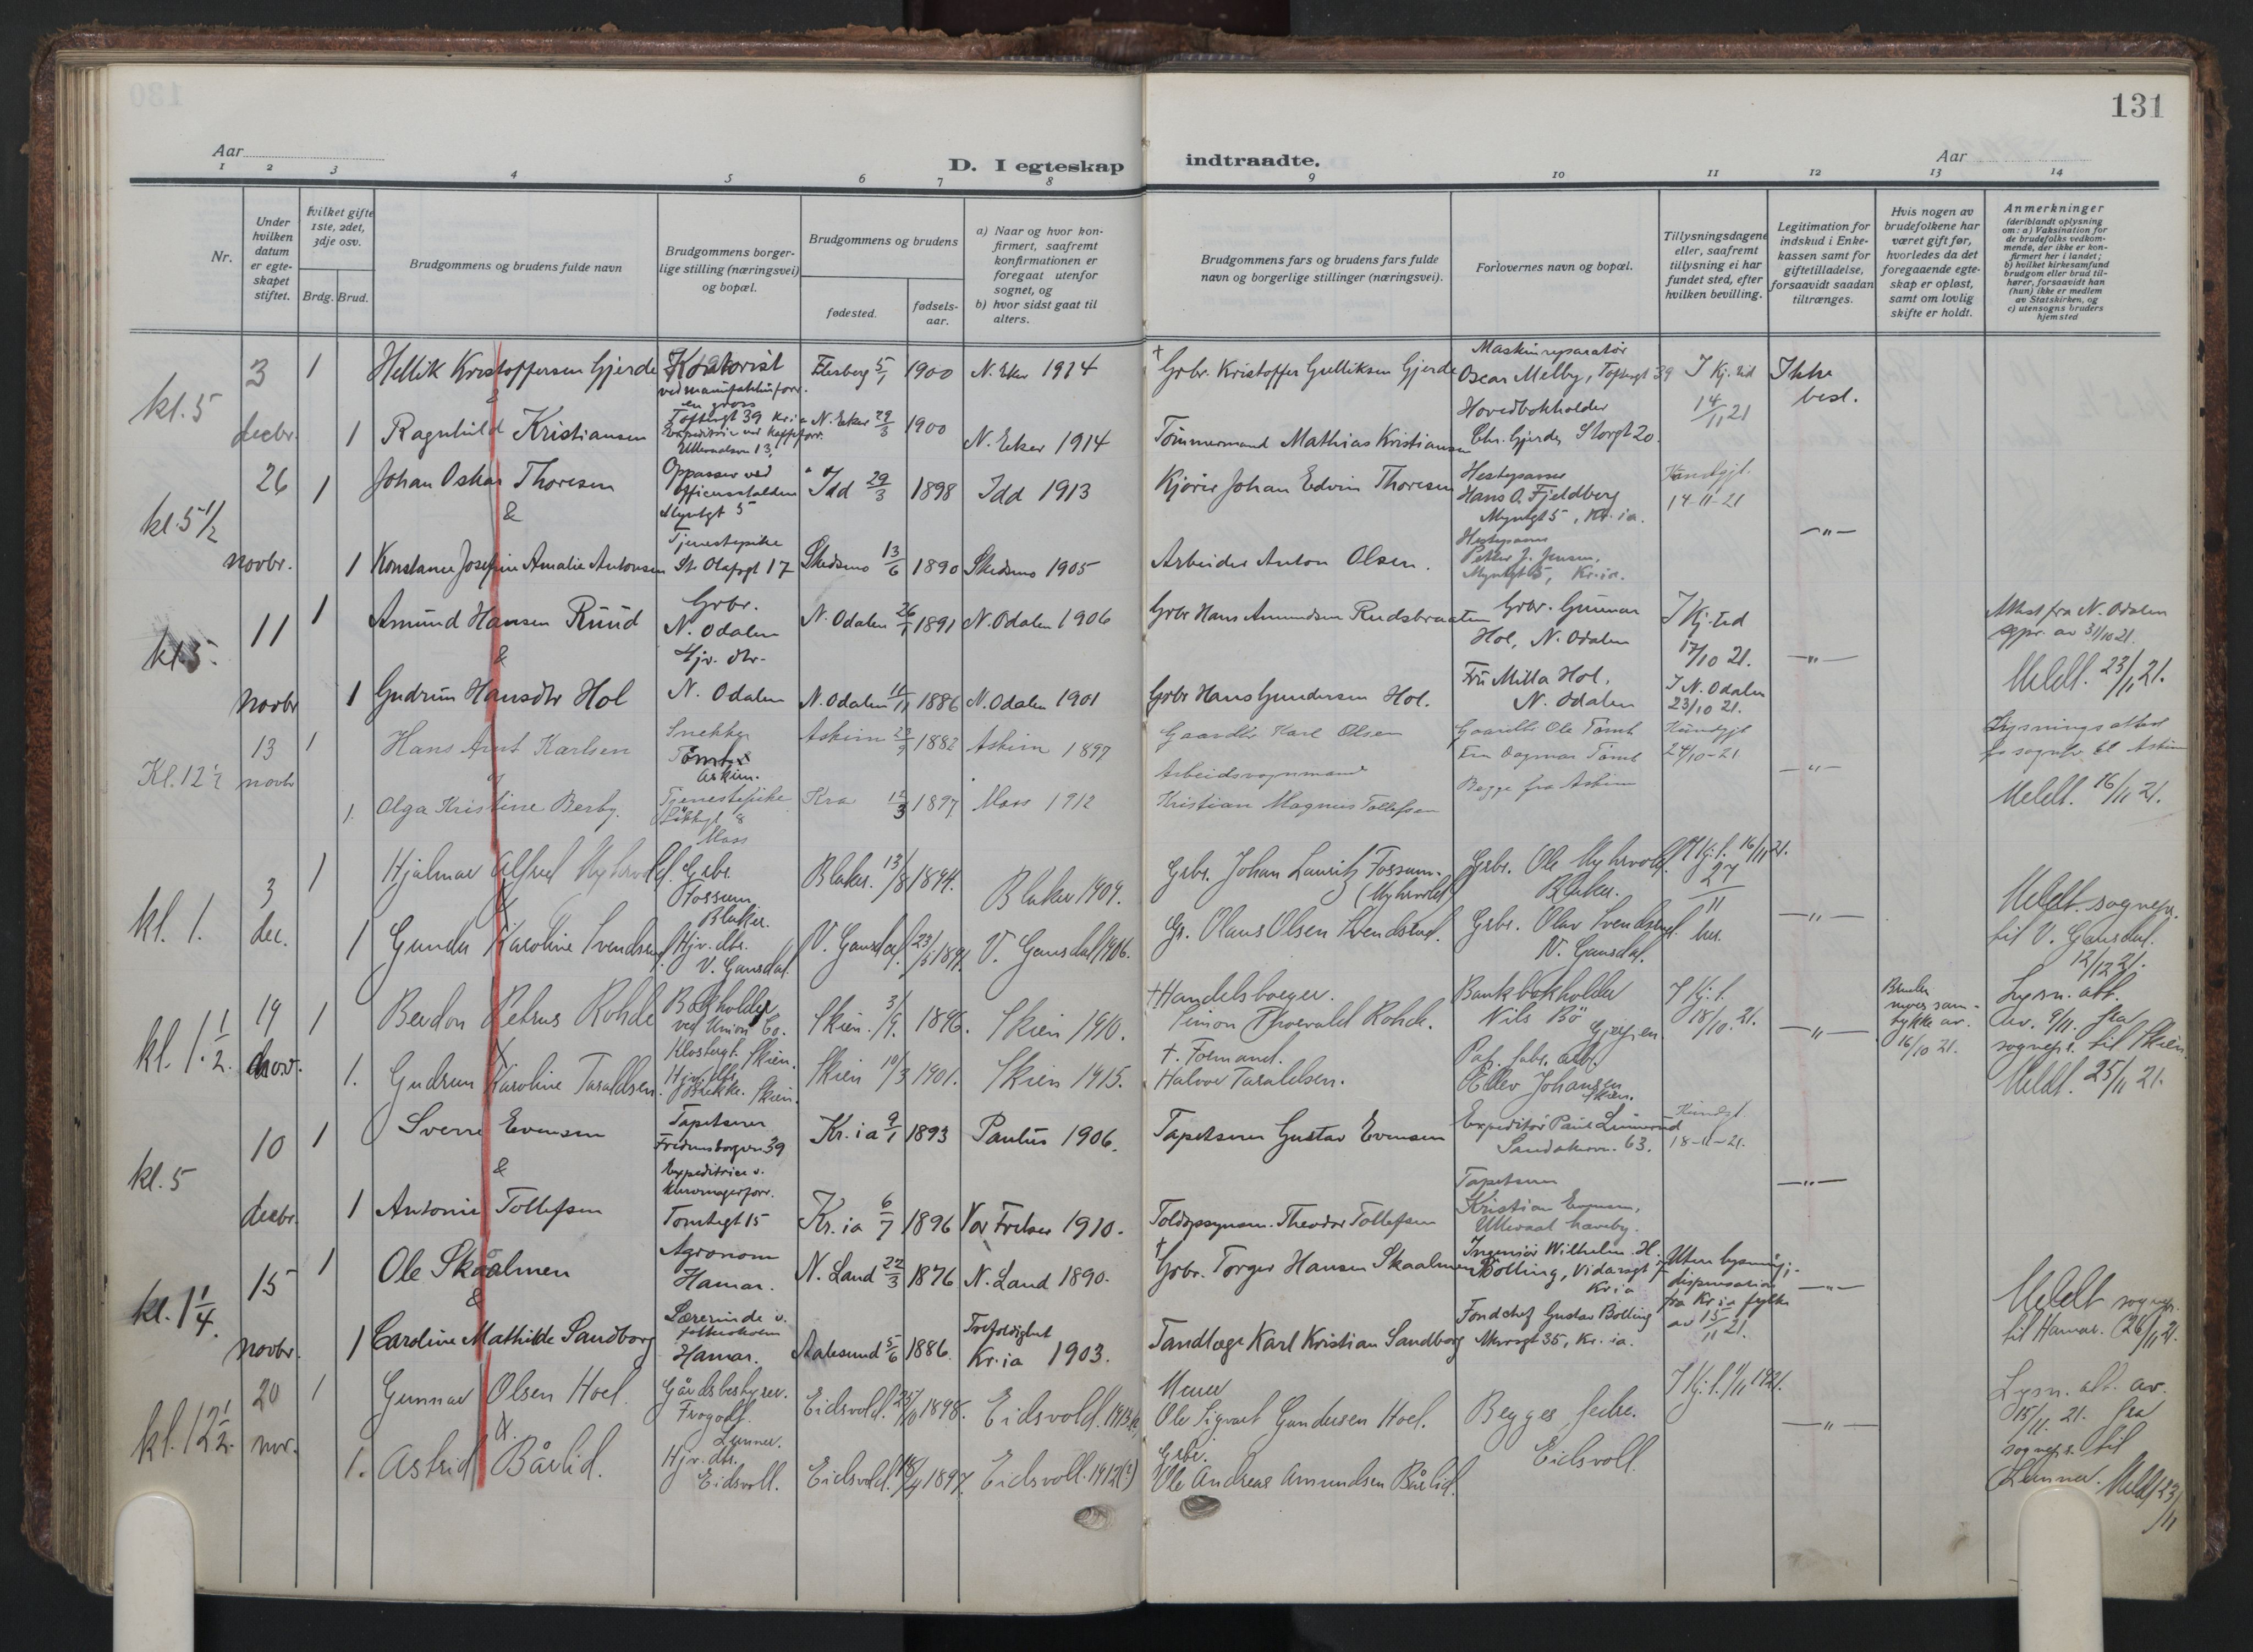 131
Aar
D. I egteskap
indtraadte.
Aar
1 2 3 4 5 6 7 8 9 10 11 12 13 14
Nr.
Under hvilken datum er egte-skapet stiftet.
Hvilket gifte 1ste, 2det, 3dje osv.
Brdg. Brud.
Brudgommens og brudens fulde navn
Brudgommens borger-lige stilling (næringsvei) og bopæl.
Brudgommens og brudens
fødested.
fødsels-aar.
a) Naar og hvor kon-firmert, saafremt konfirmationen er foregaat utenfor sognet, og
b) hvor sidst gaat til alters.
Brudgommens fars og brudens fars fulde navn og borgerlige stillinger (næringsvei).
Forlovernes navn og bopæl.
Tillysningsdagene eller, saafremt tillysning ei har fundet sted, efter hvilken bevilling.
Legitimation for indskud i Enke-kassen samt for giftetilladelse, forsaavidt saadan tiltrænges.
Hvis nogen av brudefolkene har været gift før, hvorledes da det foregaaende egte-skap er opløst, samt om lovlig skifte er holdt.
Anmerkninger
(deriblandt oplysning om: a) Vaksination for de brudefolks vedkom-mende, der ikke er kon-firmert her i landet; b) hvilket kirkesamfund brudgom eller brud til-hører, forsaavidt han (hun) ikke er medlem av Statskirken, og c) utensogns bruders hjemsted
kl. 5
3 decbr.
1 Hellik Kristoffersen Gjerde
&
Kontorist
ved manufakturforr.
en gros
Toftesgt 39 Kr.ia
Flesberg 5/1 1900
N. Eker 1914
† Grbr. Kristoffer Gulliksen Gjerde
Maskinreparatør
Oscar Melby, Toftesgt 39
I Kj. tid
14/11 21
Ikke
besl.
1 Ragnhild Kristiansen
Expeditrice ved Kaffeforr.
N. Eker 29/3 1900
N. Eker 1914
Tømmermand Mathias Kristiansen
Hovedbokholder
Chr. Gjerde, Storgt 20.
kl. 5 1/2
26 novbr.
1 Johan Oskar Thoresen
&
Oppasser ved
Officersstalden
Myntgt 5
Idd 29/3 1898
Idd 1913
Kjører Johan Edvin Thoresen
Hestepasser
Hans O. Fjeldberg
Myntgt 5, Kr.ia.
Kundgjt.
14-11-21
—„—
1 Konstance Josefine Amalie Antonsen
Tjenestepike
St. Olafsgt 17
Skedsmo 13/6 1890
Skedsmo 1905
Arbeider Anton Olsen.
Hestepasser
Petter J. Jensen.
Myntgt 5, Kr.ia.
kl. 5.
11 novbr
1 Amund Hansen Ruud
&
Grbr.
N. Odalen
N. Odalen 26/1 1891
N. Odalen 1906
Grbr Hans Amundsen Rudsbraaten
Grbr. Gunnar
Hol, N. Odalen
I Kj. tid
17/10 21.
—„—
Attest fra N. Odalen
sgpr. av 31/10 21.
Meldt. 23/11 21.
1 Gudrun Hansdtr Hol
Hjv. dtr.
N. Odalen
N. Odalen 11/11 1886
N. Odalen 1901
Grbr Hans Gundersen Hol.
Fru Milla Hol.
N. Odalen
I N. Odalen
23/10 21.
Kl. 12 1/2
13 novbr
1 Hans Arnt Karlsen
og
Snekker
Tømte
Askim.
Askim 23/9 1882
Askim 1897
Gaardbr Karl Olsen
Gaardbr Ole Tømt
Fru Dagmar Tømt
Begge fra Askim
Kundgjt
24/10-21
—„—
Lysningsattest
fra sognepr. til Askim
Meldt. 16/11 21.
1. Olga Kristine Berby.
Tjenestepike
Moss
Kra 12/3 1897
Moss 1912
Arbeidsvognmand
Kristian Magnus Tollefsen
kl. 1.
3 dec.
1 Hjalmar Alfred Myhrvold
&
Grbr.
Fossum
Blaker.
Blaker. 13/8 1894.
Blaker 1909.
Grbr. Johan Lauritz Fossum.
(Myhrvold)
Grbr. Ole Myhrvold.
Blaker.
I Kj. t. 16/11 21.
27/11
her.
—„—
Meldt. sognepr.
til V. Gausdal.
12/12 21.
1 Gunda Karoline Svendsrud.
Hjv. dtr.
V. Gausdal.
V. Gausdal. 23/5 1891.
V. Gausdal 1906.
Gr. Olaus Olsen Svendsrud.
Grbr. Olav Svendsrud
V. Gausdal.
kl. 1. 1/2.
19 nov.
1 Berdon Petrus Rohde
&
Bokholder
ved Union Co.
Klostergt. Skien.
Skien. 3/9. 1896.
Skien 1910.
† Handelsborger.
Simon Thorvald Rohde.
Bankbokholder
Nils Bö
Gjerpen.
I Kj. t.
18/10. 21.
—„—
Bruden
mors sam-
tykke av.
16/10 21.
Lysn. att.
av. 9/11. fra
sognepr. til Skien.
Meldt. 25/11 21.
1. Gudrun Karoline Taraldsen.
Hjv. dtr.
Brekke. Skien.
Skien 10/3 1901.
Skien 1915.
†. Formand.
Halvor Taraldsen.
Pap. fabr. arb.
Ellev Johansen
Skien.
kl. 5
10 decbr.
1 Sverre Evensen
&
Tapetserer
Fredensborgvn 39
Kr.ia 9/1 1893
Paulus 1906.
Tapetserer Gustav Evensen
Expeditør Paul Linnerud
Sandakervn. 63.
Kundgt.
18-11-21.
—„—
1 Antonie Tollefsen
Expeditrice v.
Tomtegt 15
Kr.ia 6/7 1896
Vor Frelser 1910.
Toldopsynsm. Theodor Tollefsen
Tapetserer
Kristian Evensen,
Ullevaal haveby.
kl. 1 1/4.
15 novbr.
1 Ole Skaalmen
&
Agronom
Hamar.
N. Land 22/3 1876
N. Land 1890.
† Grbr. Torger Hansen Skaalmen
Ingeniør Wilhelm H.
Bølling, Vidarsgt
Kr.ia
Uten lysning;
dispensation
fra Kr.ia fylke
av 15/11 21.
—„—
Meldt sognepr.
til Hamar. 26/11 21.
1 Caroline Mathilde Sandborg
Lærerinde v.
folkeskolen
Hamar.
Aalesund 5/6 1886.
Trefoldighet
Kr.ia 1903.
Tandlæge Karl Kristian Sandborg
Fondchef Gustav Bølling
35, Kr.ia.
kl. 12 1/2.
20 nov.
1 Gunnar Olsen Hoel.
&.
Gårdsbestyrer.
Lunner.
Eidsvold. 25/10 1898.
Eidsvold. 1913
Murer
Ole Sigvart Gundersen Hoel.
Begges fedre.
Eidsvoll.
I Kj. t. 1/11 1921.
—„—
Lysn. att. av.
15/11. 21. fra
sognepr. til
Lunner. Meldt 23/11
1. Astrid Bårlid.
Hjv. dtr.
Eidsvoll.
Eidsvold. 18/4 1897.
Eidsvoll. 1912(?)
Grbr.
Ole Andreas Amundsen Bårlid.